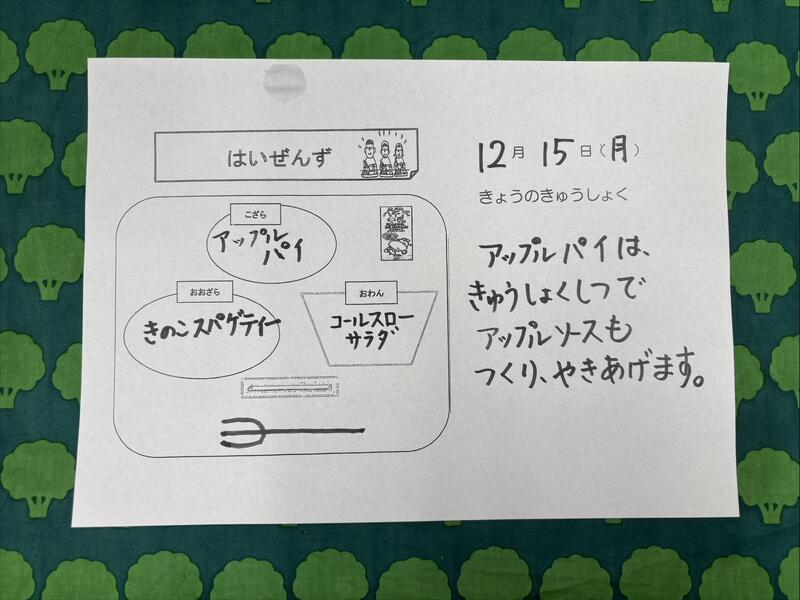 はいぜんず
こざら
アップル
パイ
おおざら
きのこスパゲティー
おわん
コールスロー
サラダ
12月 15日(月)
きょうのきゅうしょく
アップルパイは、
きゅうしょくしつで
アップルソースも
つくり、やきあげます。